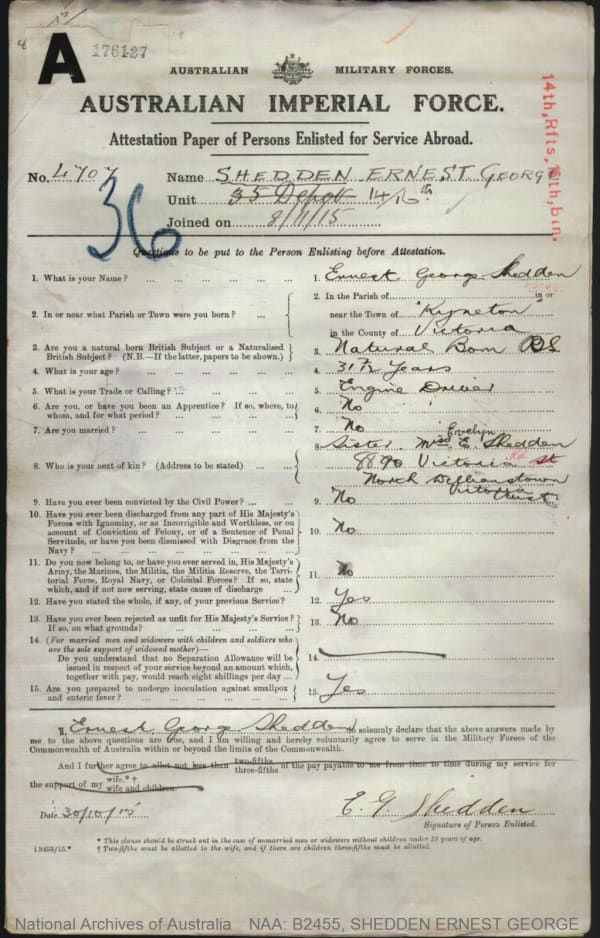 A
176127
AUSTRALIAN MILITARY FORCES.
AUSTRALIAN IMPERIAL FORCE.
Attestation Paper of Persons Enlisted for Service Abroad.
14th, Rfts, 16th, btn.
No. 4707 Name SHEDDEN ERNEST GEORGE
36
Unit 35 Depot 14/16th
Joined on 8/11/15
Questions to be put to the Person Enlisting before Attestation.
1. What is your Name? ... ... ... ... ... 1. Ernest George Shedden
2. In or near what Parish or Town were you born? ... 2. In the Parish of in or
near the Town of Kyneton
in the County of Victoria
3. Are you a natural born British Subject or a Naturalised British Subject? (N.B.—If the latter, papers to be shown.) 3. Natural Born BS
4. What is your age? ... ... ... ... ... 4. 31 Years
5. What is your Trade or Calling? ... ... ... ... 5. Engine Driver
6. Are you, or have you been an Apprentice? If so, where, to whom, and for what period? ... ... ... 6. No
7. Are you married? ... ... ... ... ... 7. No
8. Who is your next of kin? (Address to be stated) ... ... 8. Sister. Miss E. Evelyn Shedden
88.90 Victoria St
North Williamstown
Victoria
9. Have you ever been convicted by the Civil Power? ... ... 9. No
10. Have you ever been discharged from any part of His Majesty's
Forces with Ignominy, or as Incorrigible and Worthless, or on
account of Conviction of Felony, or of a Sentence of Penal
Servitude, or have you been dismissed with Disgrace from the
Navy? ... ... ... ... ... 10. No
11. Do you now belong to, or have you ever served in, His Majesty's
Army, the Marines, the Militia, the Militia Reserve, the Terri-
torial Force, Royal Navy, or Colonial Forces? If so, state
which, and if not now serving, state cause of discharge ... 11. No
12. Have you stated the whole, if any, of your previous Service? 12. Yes
13. Have you ever been rejected as unfit for His Majesty's Service?
If so, on what grounds? ... ... ... ... 13. No
14. (For married men and widowers with children and soldiers who
are the sole support of widowed mother)—
Do you understand that no Separation Allowance will be
issued in respect of your service beyond an amount which,
together with pay, would reach eight shillings per day ... 14.
15. Are you prepared to undergo inoculation against smallpox
and enteric fever? ... ... ... ... ... 15. Yes
I, Ernest George Shedden do solemnly declare that the above answers made by
me to the above questions are true, and I am willing and hereby voluntarily agree to serve in the Military Forces of the
Commonwealth of Australia within or beyond the limits of the Commonwealth.
And I further agree to allot not less than two-fifths three-fifths of the pay payable to me from time to time during my service for
the support of my wife.*† wife and children.
Date 30/10/15 E. G. Shedden
Signature of Person Enlisted.
* This clause should be struck out in the case of unmarried men or widowers without children under 18 years of age.
† Two-fifths must be allotted to the wife, and if there are children three-fifths must be allotted.
National Archives of Australia NAA: B2455, SHEDDEN ERNEST GEORGE